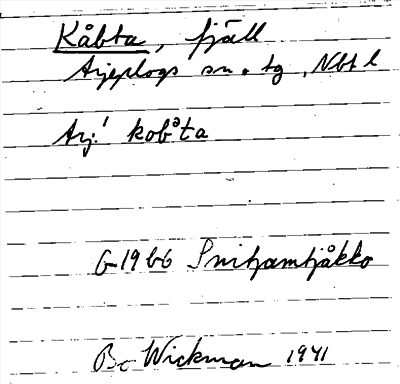 Kåbta, fjäll
Arjeplogs sn. tg, Nbtl
Arj: kobᵊta
G 19 b6
Bo Wickman 1941